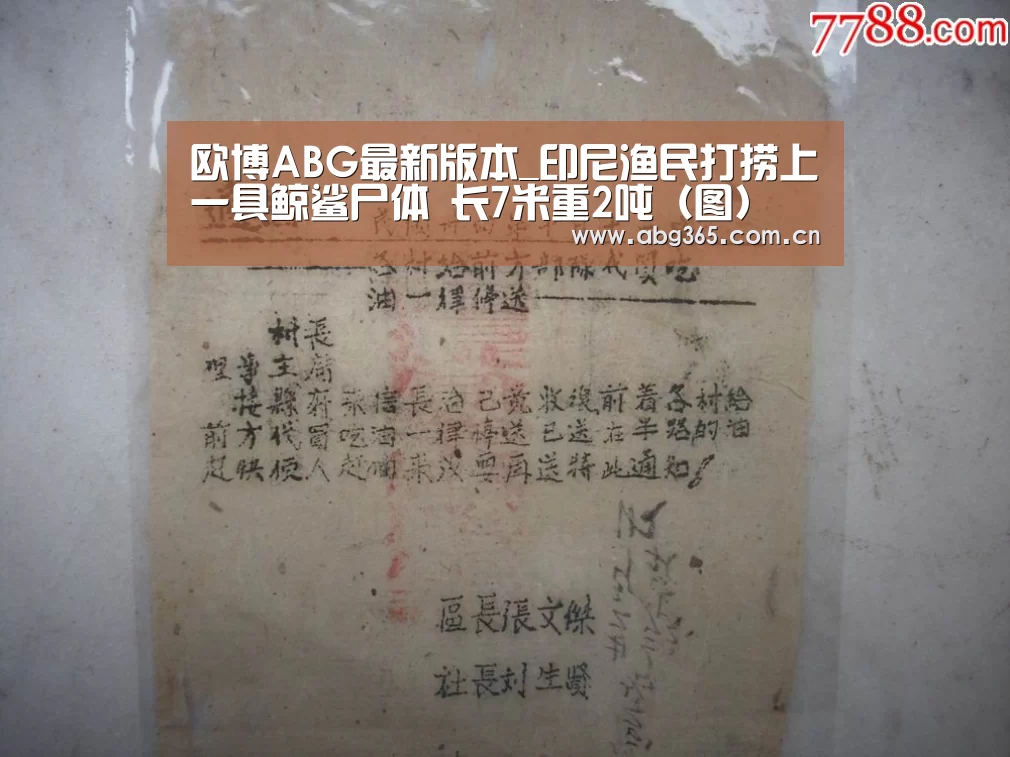 7788.com
欧博ABG最新版本_印尼渔民打捞上
一具鲸鲨尸体 长7米重2吨（图）
www.abg365.com.cn
各村給前方部隊代買吃
油一律停送
村長
理事主
接縣府來信長治已竟收復前着各村給
前方代買吃油一律停送已送在半路的油
赶快使人赶回来没要再送特此通知！
區長張文傑
社長刘生賢